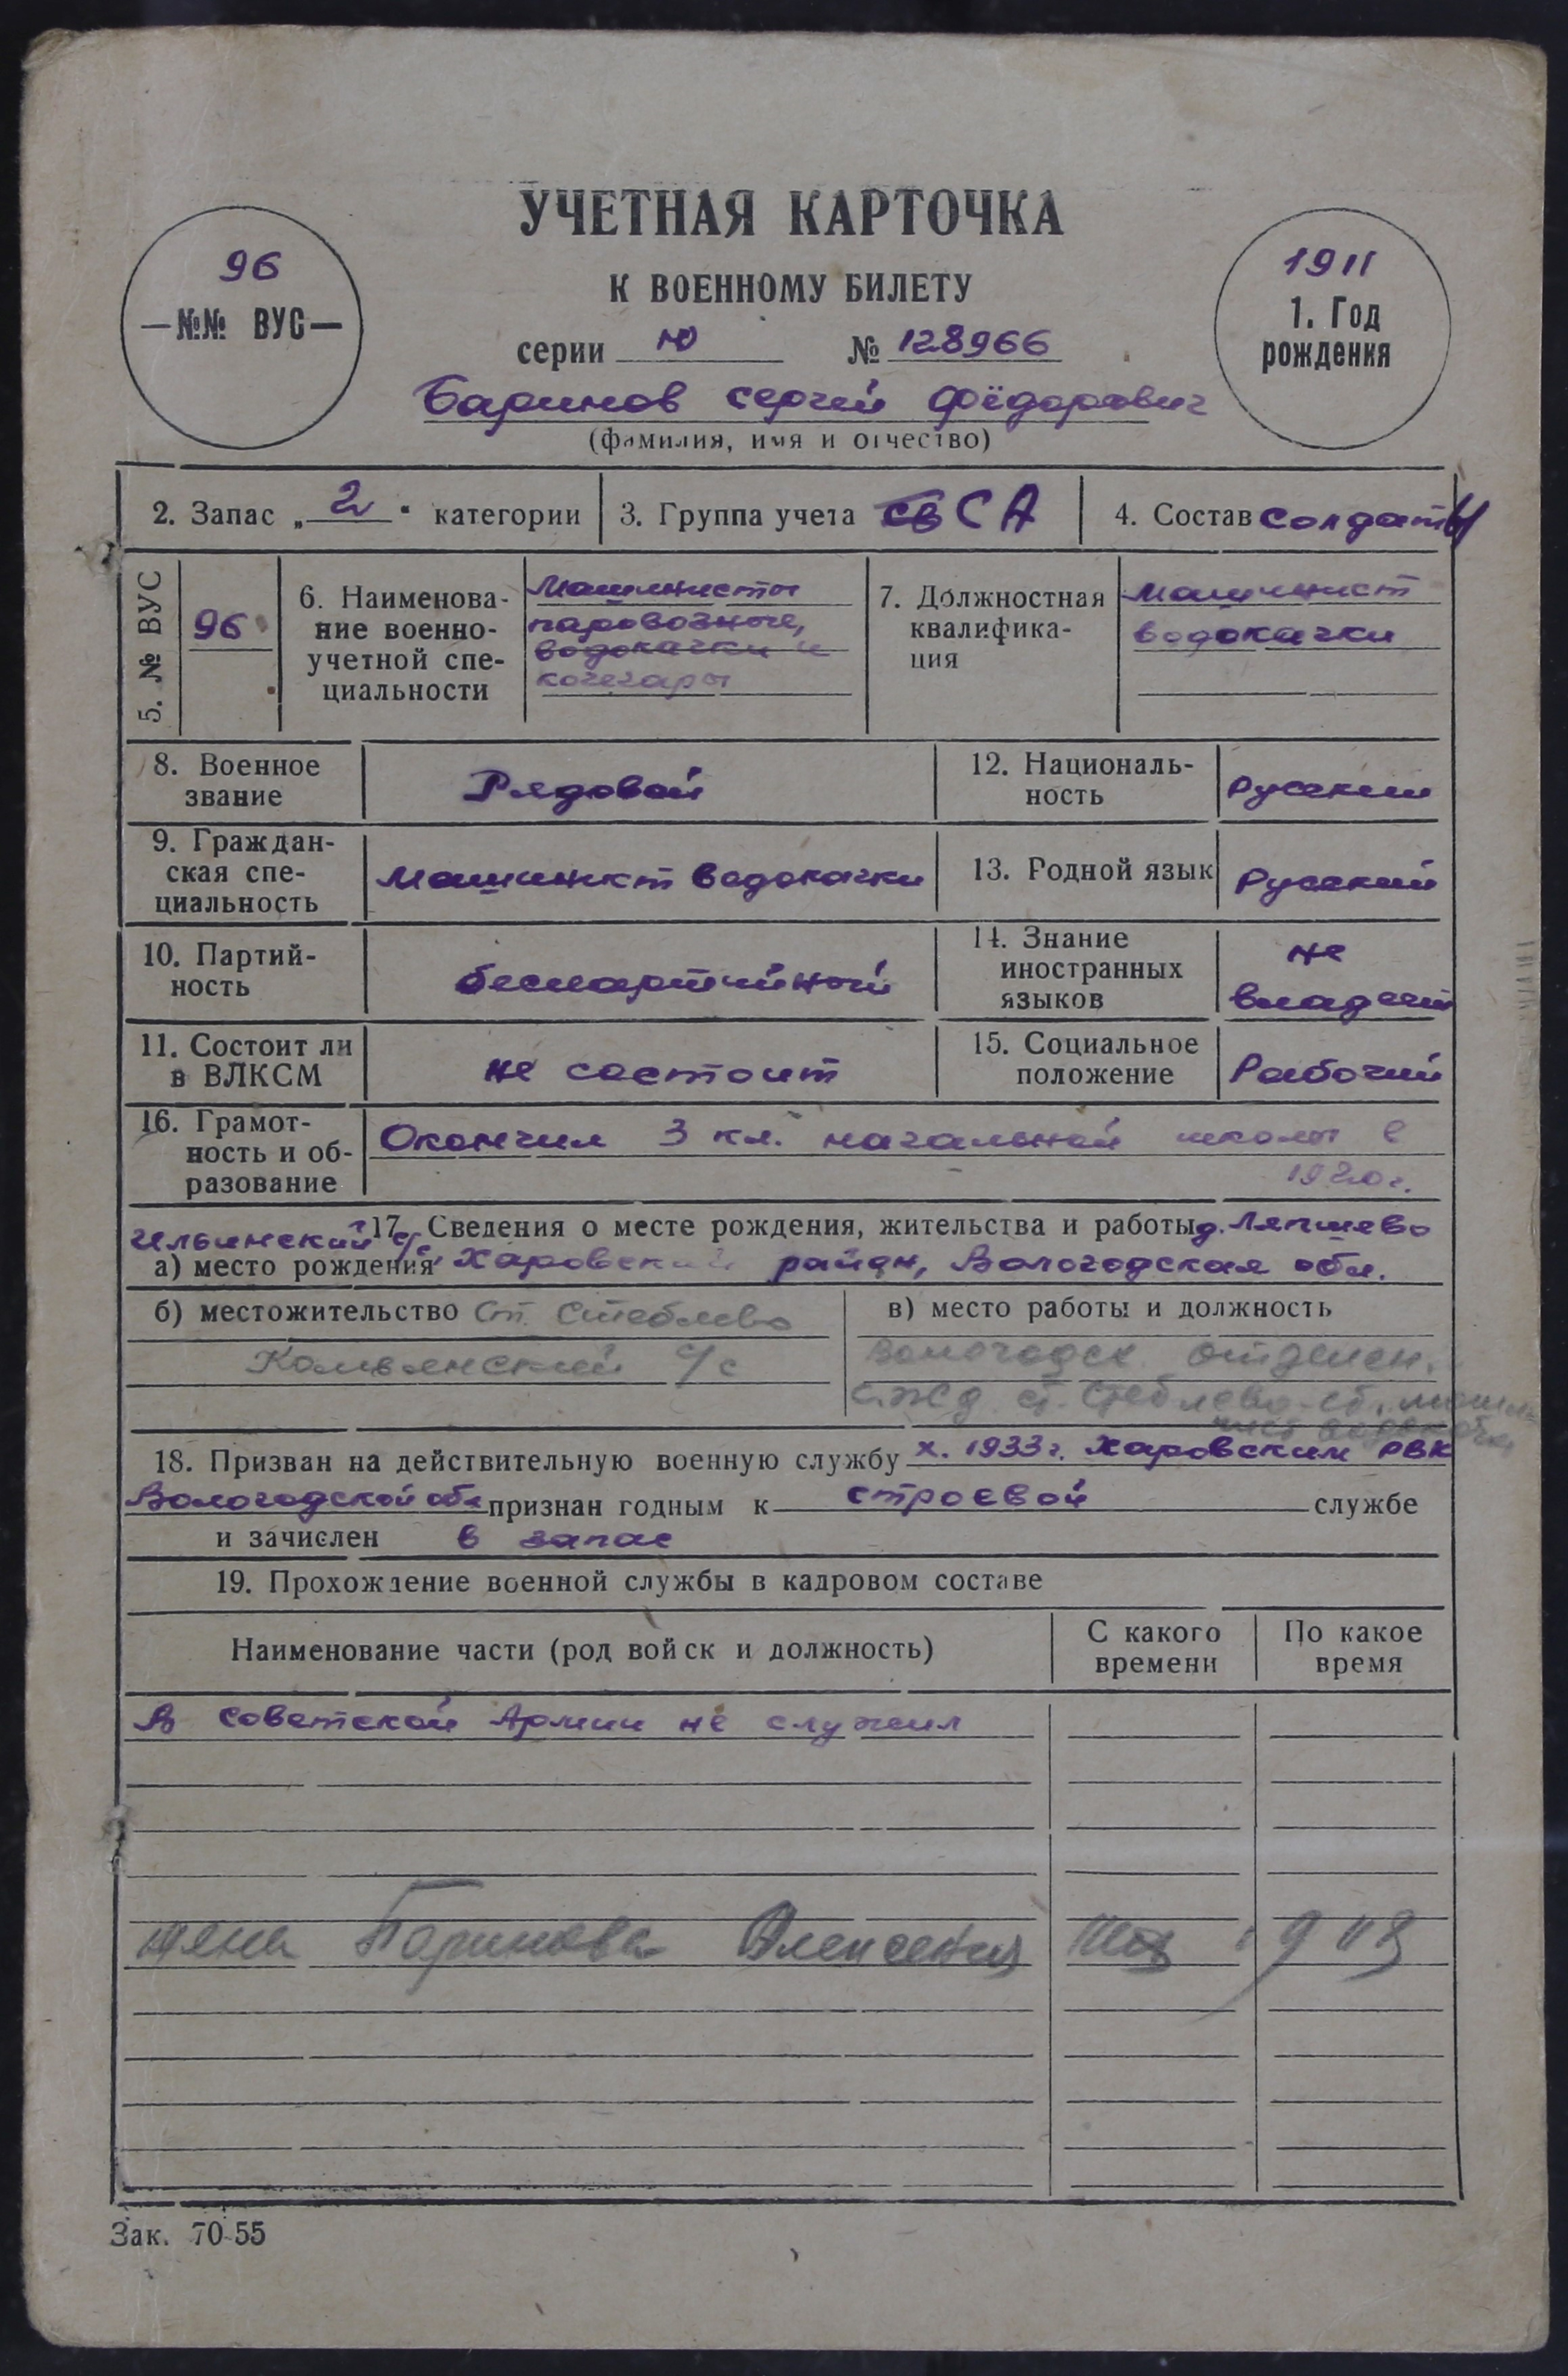 УЧЕТНАЯ КАРТОЧКА
К ВОЕННОМУ БИЛЕТУ
96
—№№ ВУС—
1911
1. Год
рождения
серии Ю № 128966
Баринов Сергей Фёдорович
(фамилия, имя и отчество)
2. Запас „2“ категории
3. Группа учета СА
4. Состав солдаты
5. № ВУС
96
6. Наименова-
ние военно-
учетной спе-
циальности
Машинисты
паровозные,
водокачки и
кочегары
7. Должностная
квалифика-
ция
Машинист
водокачки
8. Военное
звание
Рядовой
12. Националь-
ность
Русский
9. Граждан-
ская спе-
циальность
Машинист водокачки
13. Родной язык
Русский
10. Партий-
ность
беспартийный
14. Знание
иностранных
языков
не
владеет
11. Состоит ли
в ВЛКСМ
не состоит
15. Социальное
положение
Рабочий
16. Грамот-
ность и об-
разование
Окончил 3 кл. начальной школы в
1920г.
17. Сведения о месте рождения, жительства и работы д. Ляпшево
Ильинский с/с
а) место рождения Харовский район, Вологодская обл.
б) местожительство Ст. Стеблево
с/с
в) место работы и должность
Вологодск. отделен.
18. Призван на действительную военную службу X. 1933г. Харовским РВК
Вологодской обл признан годным к строевой службе
и зачислен в запас
19. Прохождение военной службы в кадровом составе
Наименование части (род войск и должность)
С какого
времени
По какое
время
В Советской Армии не служил
жена Баринова 1913
Зак. 70-55